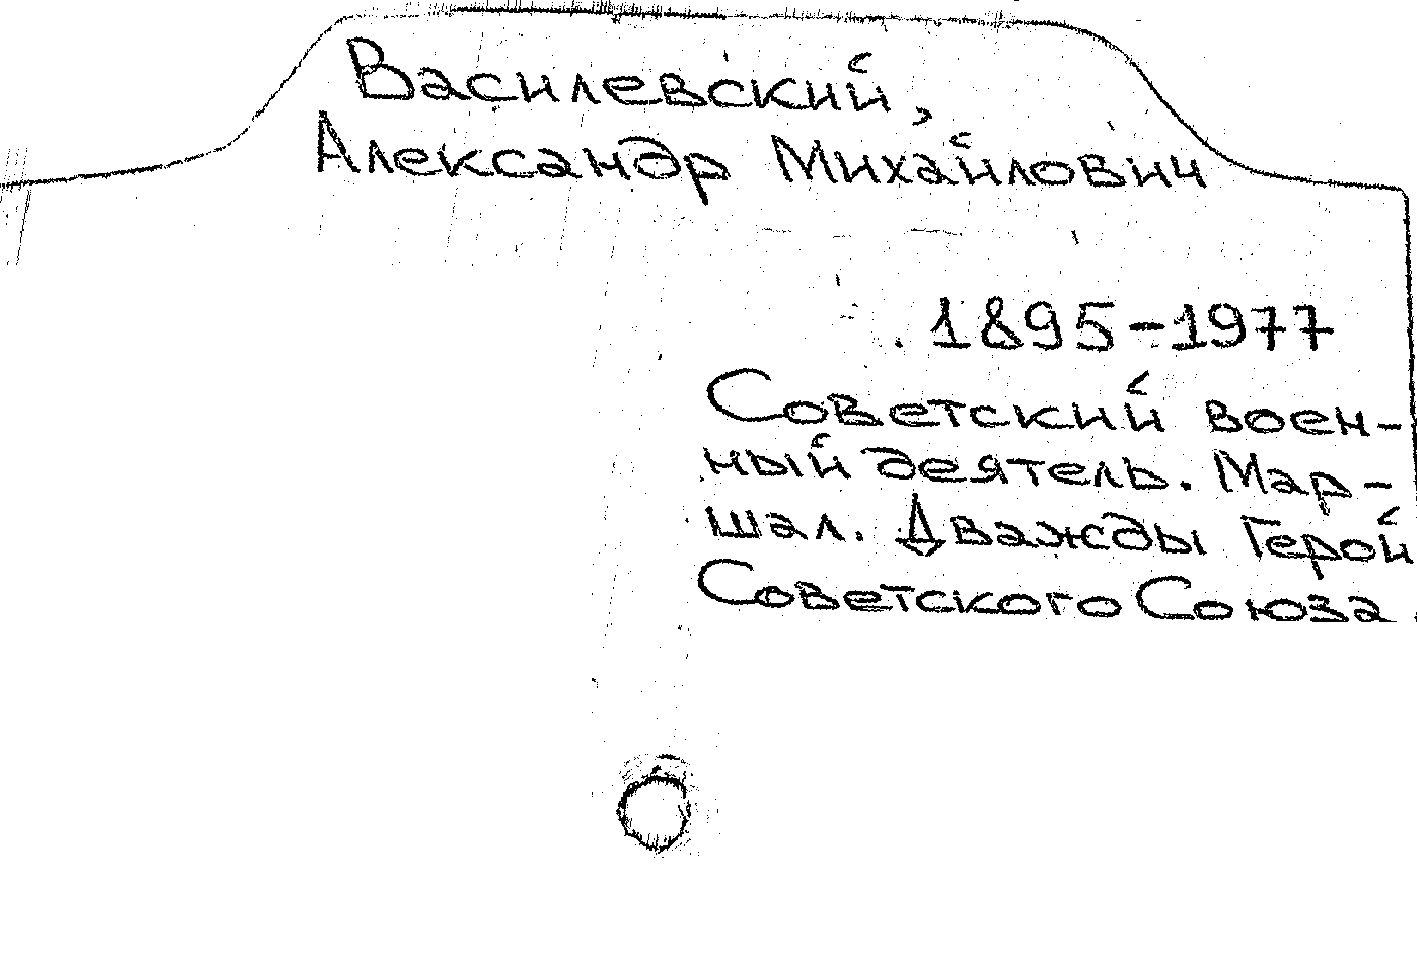 Василевский,
Александр Михайлович
1895-1977
Советский воен-
ный деятель. Мар-
шал. Дважды Герой
Советского Союза.